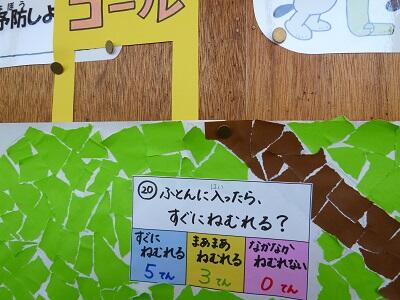 予防しよ
よぼう
ゴール
⑳ふとんに入ったら、
はい
すぐにねむれる?
すぐに
ねむれる
5てん
まあまあ
ねむれる
3てん
なかなか
ねむれない
0てん